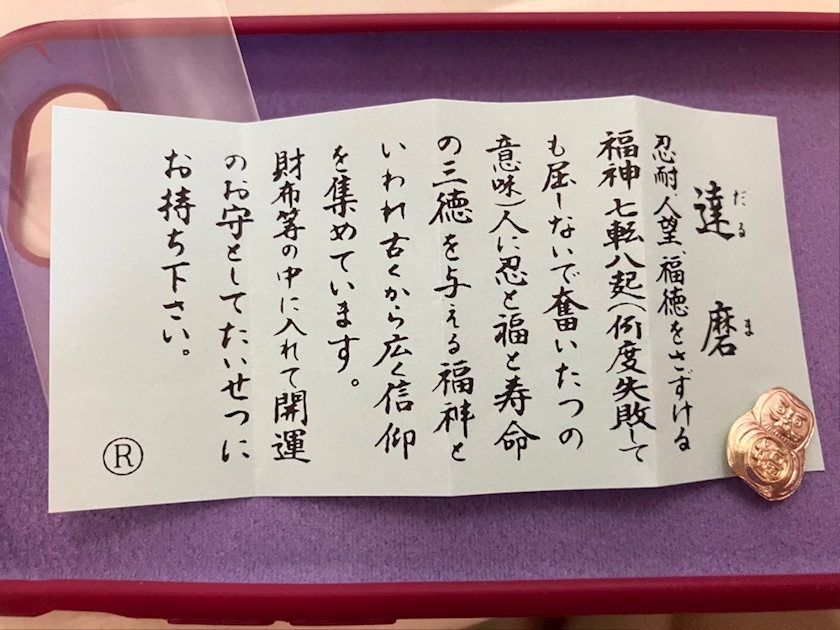 達磨
だるま
忍耐、人望、福徳をさずける
福神 七転八起(何度失敗して
も屈しないで奮いたつの
意味)人に忍と福と寿命
の三徳を与える福神と
いわれ古くから広く信仰
を集めています。
財布等の中に入れて開運
のお守としてたいせつに
お持ち下さい。
Ⓡ